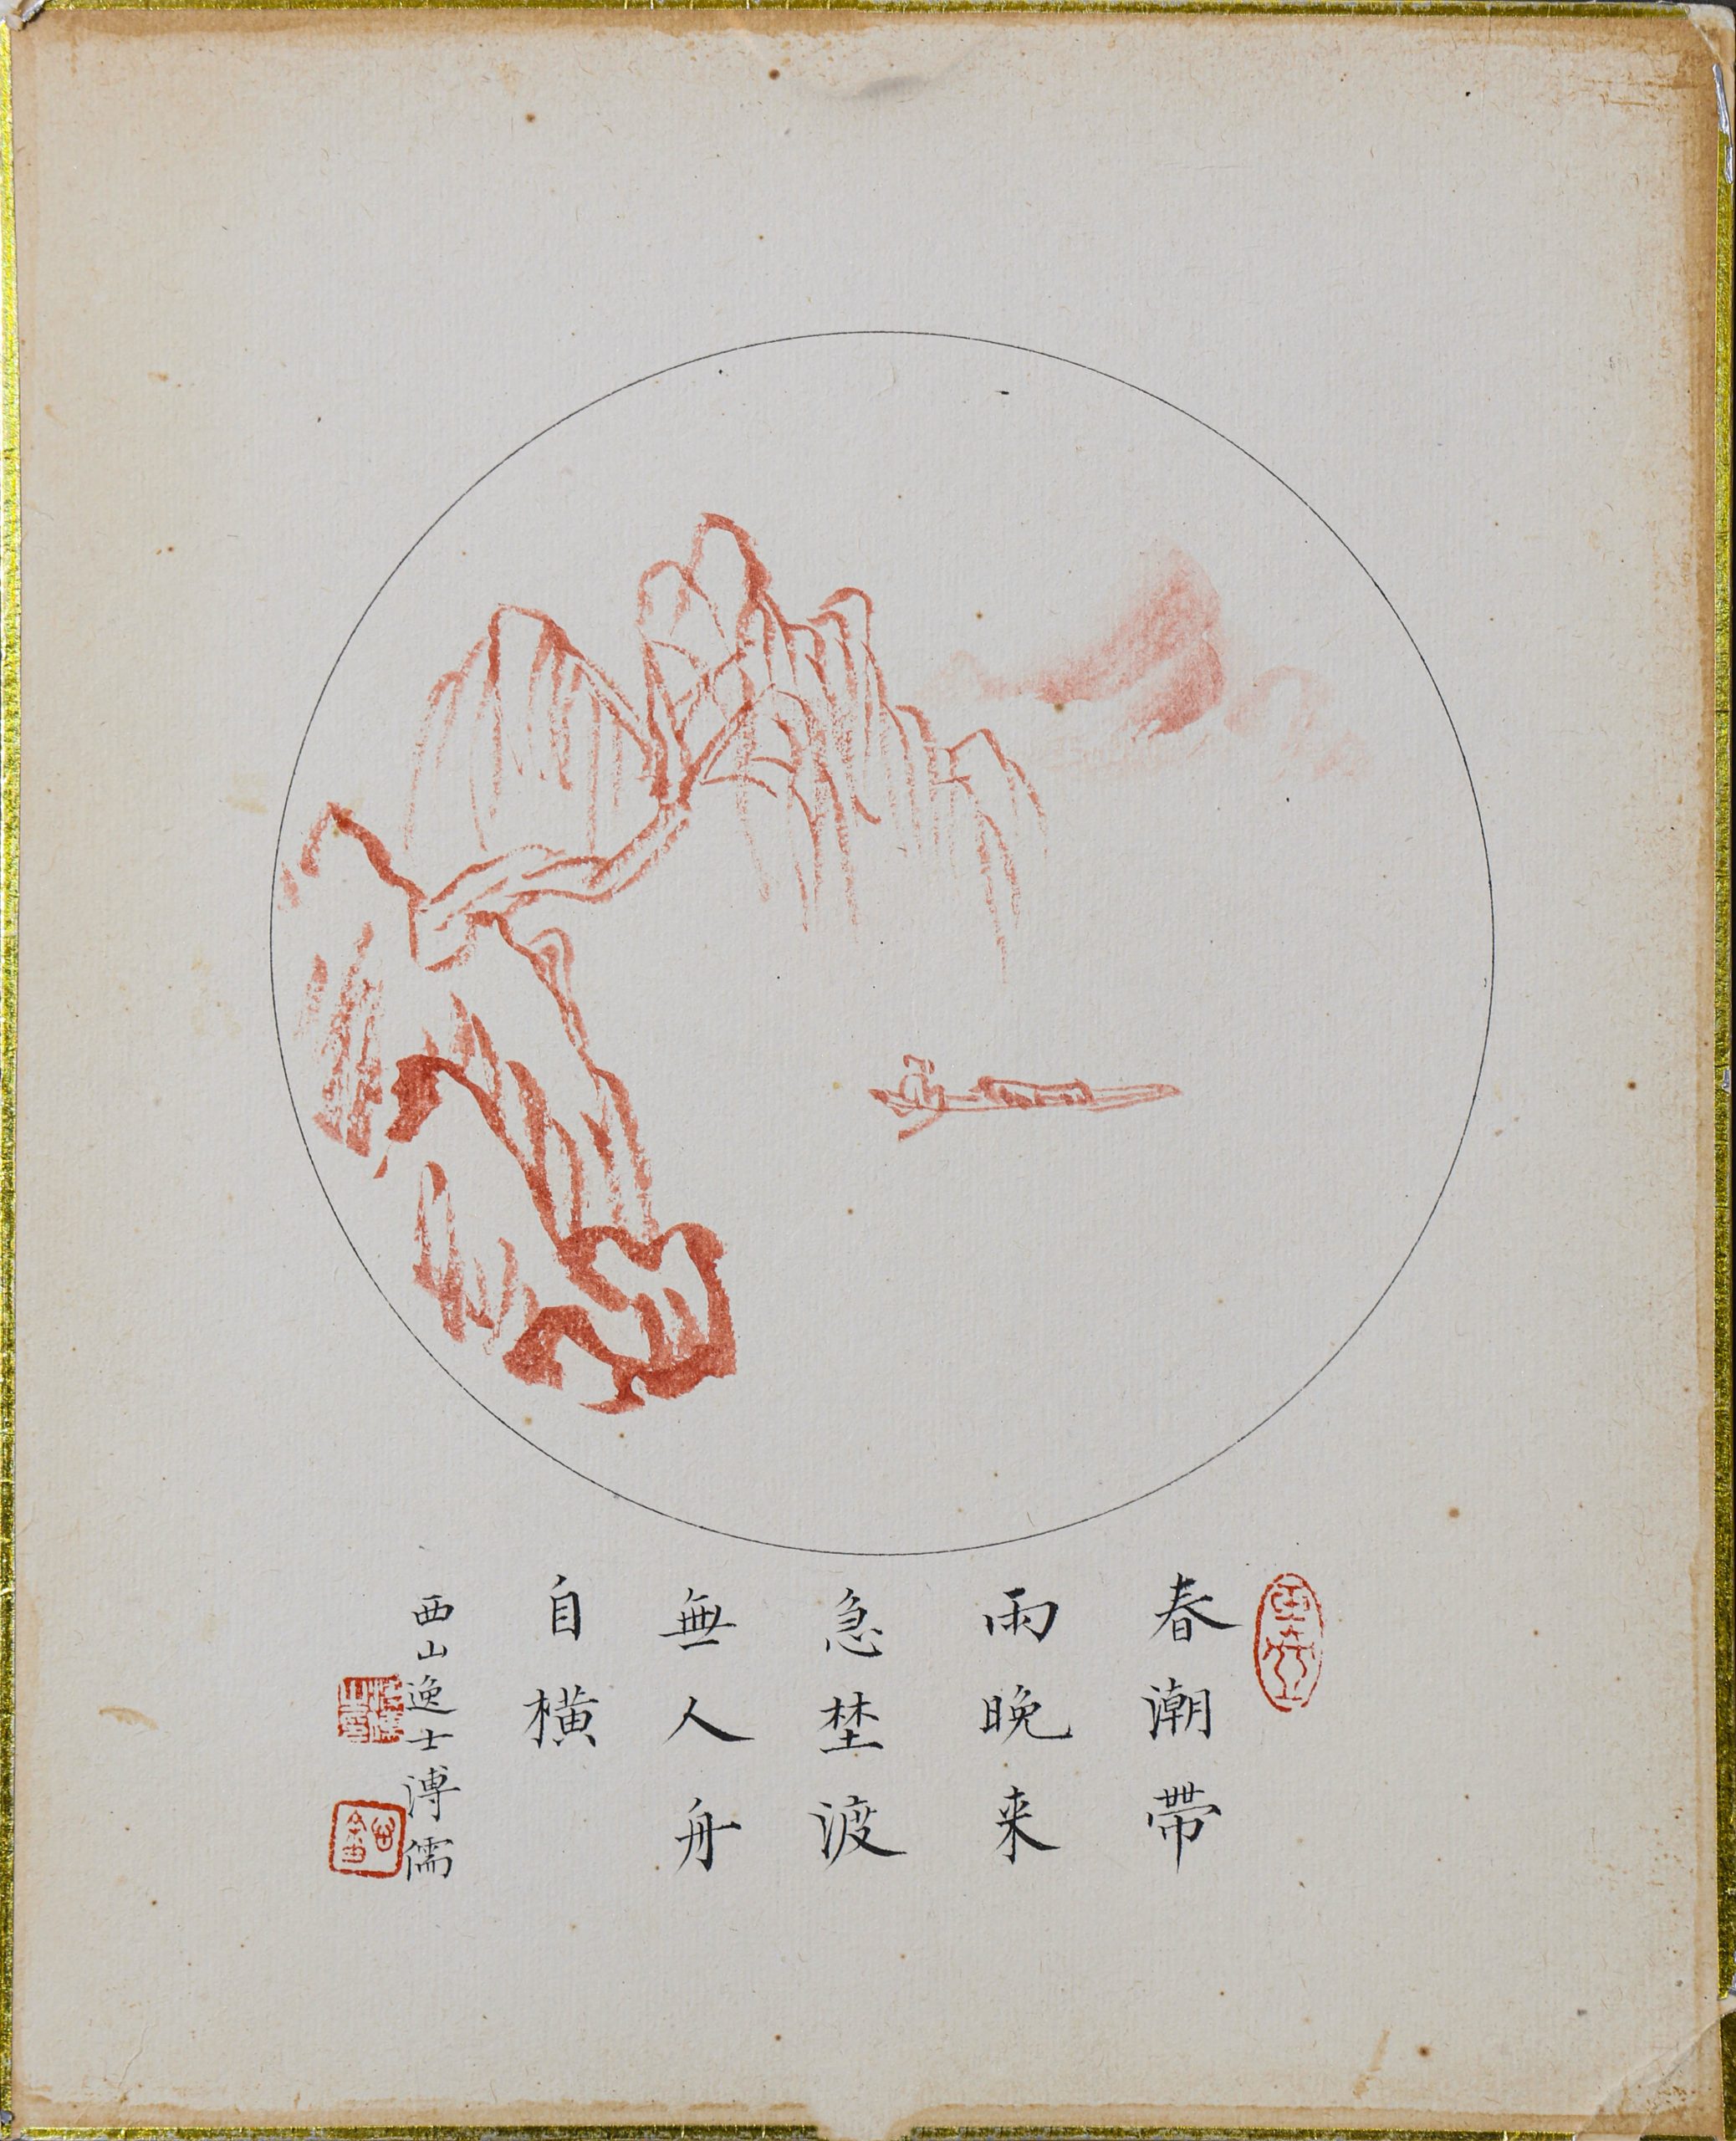 春潮帶
雨晚来
急埜渡
無人舟
自橫
西山逸士溥儒